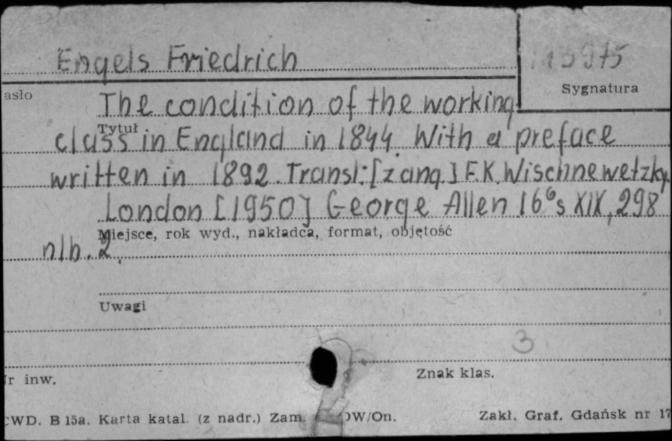 Engels Friedrich
Sygnatura
asło
The condition of the working
Tytuł
class in England in 1844. With a preface
written in 1892. Transl: [z ang.] F.K. Wischnewetzky
London [1950] George Allen 16°s XIX, 298
Miejsce, rok wyd., nakładca, format, objętość
nlb. 2.
Uwagi
3
r inw.
Znak klas.
CWD. B 15a. Karta katal. (z nadr.) Zam. OW/On.
Zakł. Graf. Gdańsk nr 17